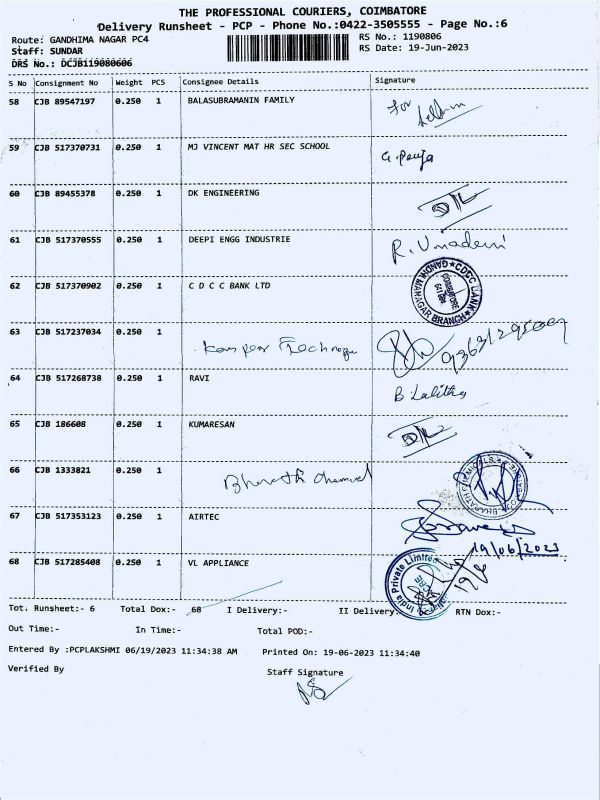 THE PROFESSIONAL COURIERS, COIMBATORE
Delivery Runsheet - PCP - Phone No.:0422-3505555 - Page No.:6
Route: GANDHIMA NAGAR PC4 RS No.: 1190806
Staff: SUNDAR RS Date: 19-Jun-2023
DRS No.: DCJB119080606
S No Consignment No Weight PCS Consignee Details Signature
58 CJB 89547197 0.250 1 BALASUBRAMANIN FAMILY For
59 CJB 517370731 0.250 1 MJ VINCENT MAT HR SEC SCHOOL G. Pooja
60 CJB 89455378 0.250 1 DK ENGINEERING
61 CJB 517370555 0.250 1 DEEPI ENGG INDUSTRIE R. Umadevi
62 CJB 517370902 0.250 1 C D C C BANK LTD
CDCC BANK ★ GANDHI MANAGAR BRANCH ★ COIMBATORE
63 CJB 517237034 0.250 1
64 CJB 517268738 0.250 1 RAVI B Lalitha
65 CJB 186608 0.250 1 KUMARESAN
66 CJB 1333821 0.250 1 Bharath Chemical
BHARATH CHEMICALS
67 CJB 517353123 0.250 1 AIRTEC
19/06/2023
68 CJB 517285408 0.250 1 VL APPLIANCE
India Private Limited
Tot. Runsheet:- 6 Total Dox:- 68 I Delivery:- II Delivery:- RTN Dox:-
Out Time:- In Time:- Total POD:-
Entered By :PCPLAKSHMI 06/19/2023 11:34:38 AM Printed On: 19-06-2023 11:34:40
Verified By Staff Signature